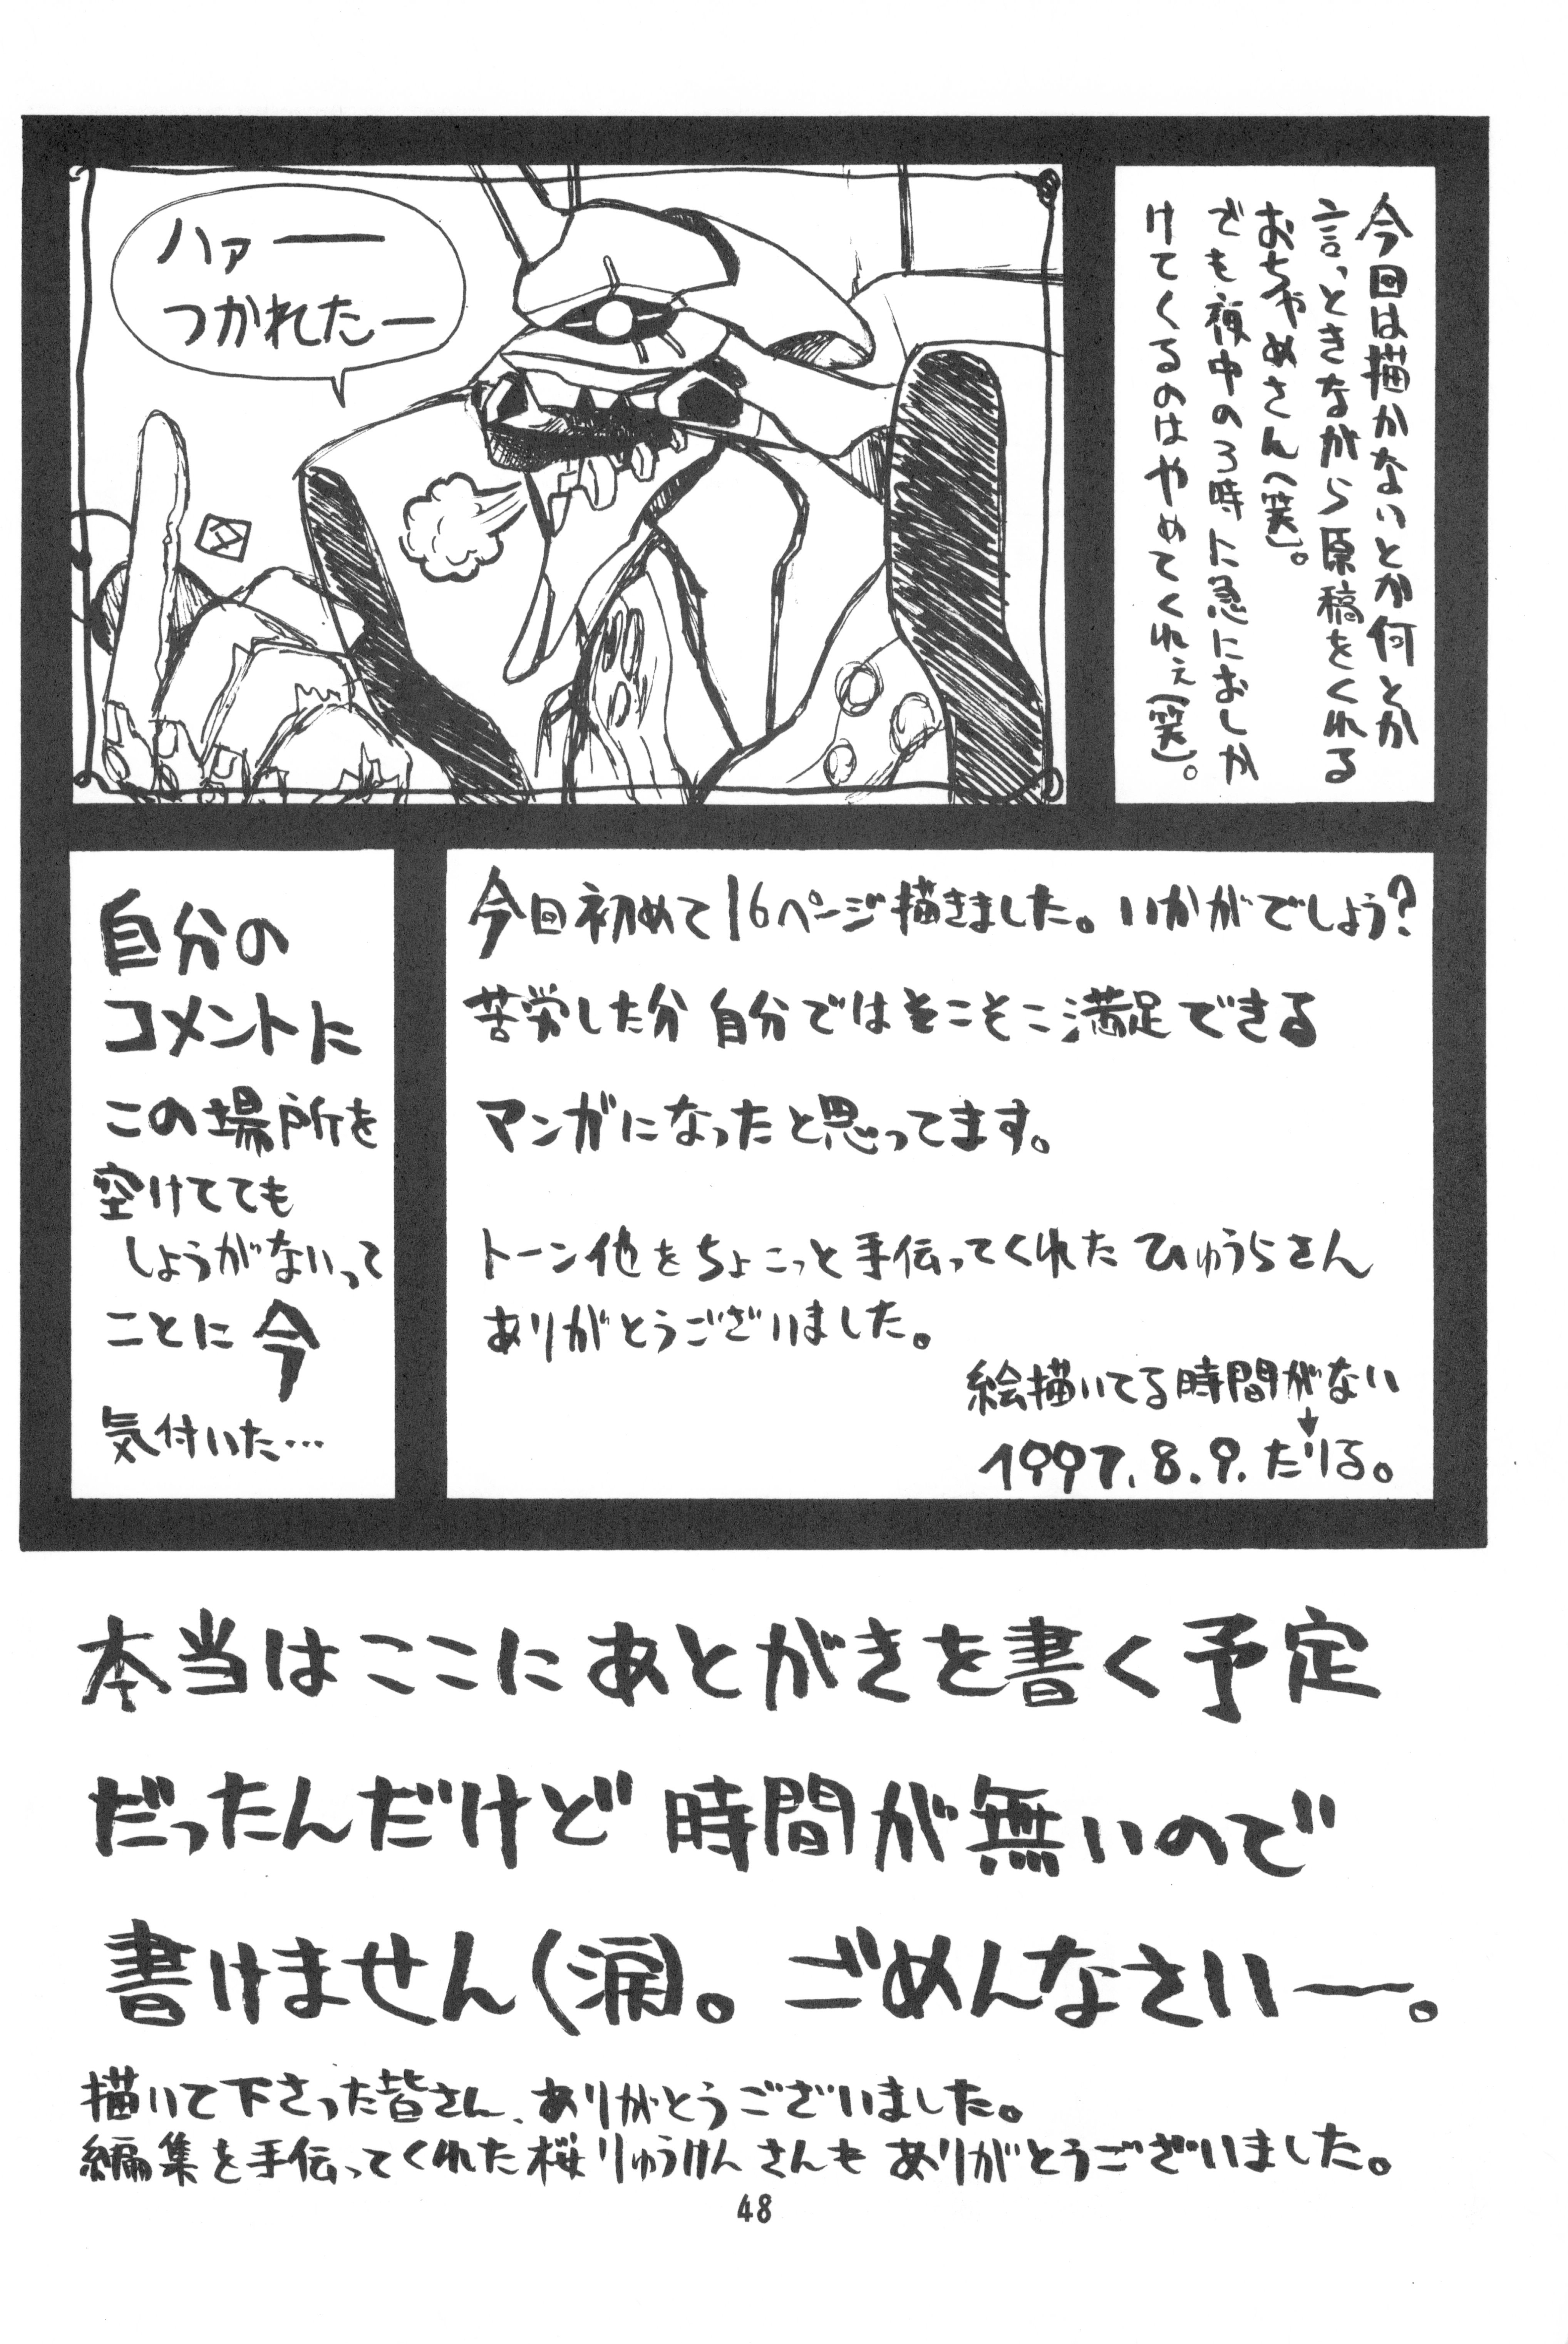 今回は描かないとか何とか
言っときながら原稿をくれる
おちゃめさん(笑)。
でも夜中の3時に急におしか
けてくるのはやめてくれぇ(笑)。
ハァー
つかれたー
今回初めて16ページ描きました。いかがでしょう?
苦労した分自分ではそこそこ満足できる
マンガになったと思ってます。
トーン他をちょこっと手伝ってくれたひゅうらさん
ありがとうございました。
絵描いてる時間がない
↓
1997.8.9.だりる。
自分の
コメントに
この場所を
空けてても
しょうがないって
ことに今
気付いた…
本当はここにあとがきを書く予定
だったんだけど時間が無いので
書けません(涙)。ごめんなさいー。
描いて下さった皆さん、ありがとうございました。
編集を手伝ってくれた桜りゅうけんさんもありがとうございました。
48